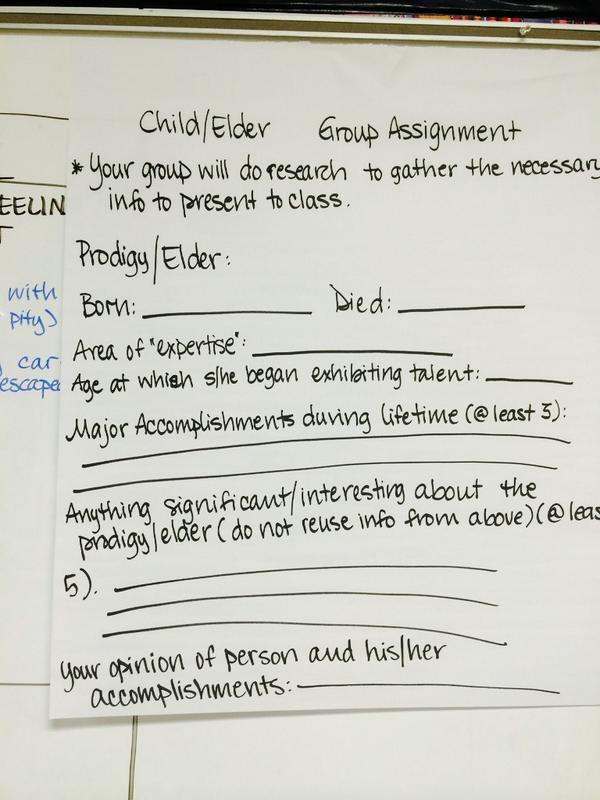 Child/Elder Group Assignment
* Your group will do research to gather the necessary
info to present to class.
Prodigy/Elder:
Born: Died:
Area of "expertise":
Age at which s/he began exhibiting talent:
Major Accomplishments during lifetime (@ least 3):
Anything significant/interesting about the
prodigy/elder (do not reuse info from above) (@ leas
5).
Your opinion of person and his/her
accomplishments:
EELIN
T
with
pity)
car
escaped